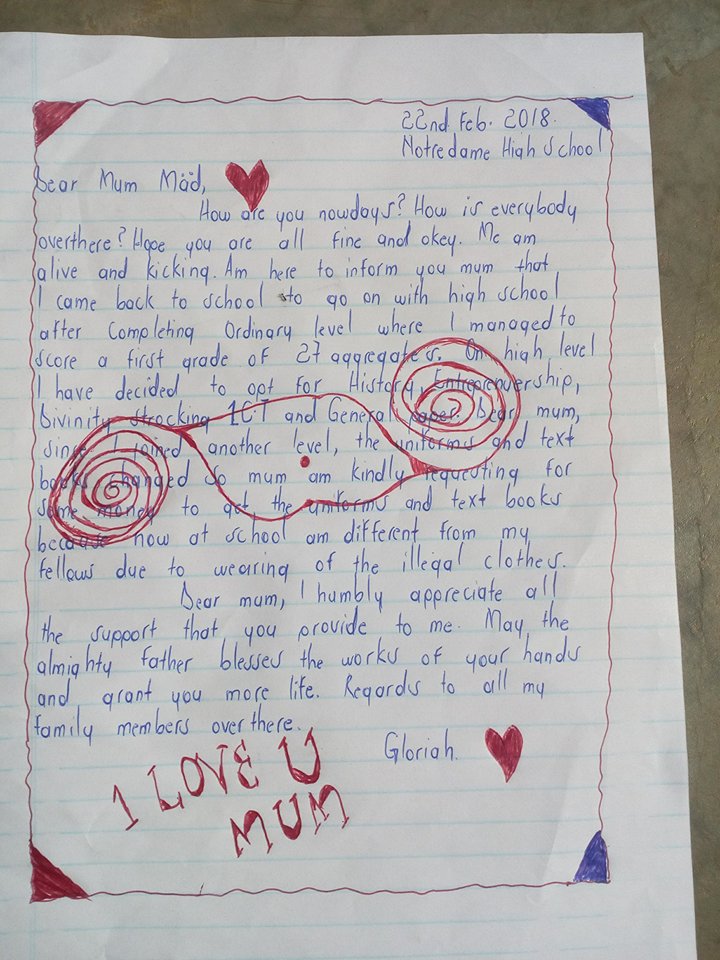 22nd Feb. 2018.
Notredame High School
Dear Mum Mäd,
How are you nowdays? How is everybody
overthere? Hope you are all fine and okey. Me am
alive and kicking. Am here to inform you mum that
I came back to school to go on with high school
after completing Ordinary level where I managed to
score a first grade of 27 aggregates. On high level
I have decided to opt for History, Entreprenuership,
Divinity strocking ICT and General paper. Dear mum,
since I joined another level, the uniforms and text
books changed so mum am kindly requesting for
some money to get the uniforms and text books
because now at school am different from my
fellows due to wearing of the illegal clothes.
Dear mum, I humbly appreciate all
the support that you provide to me. May the
almighty father blesses the works of your hands
and grant you more life. Regards to all my
family members over there.
Gloriah.
I LOVE U
MUM